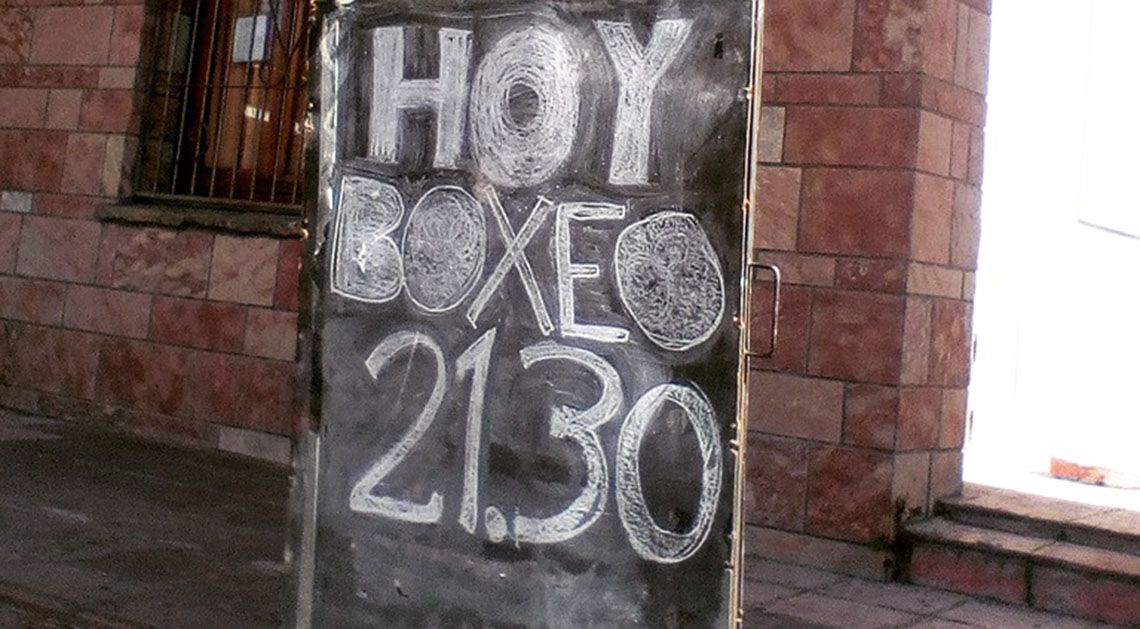 HOY
BOXEO
21.30